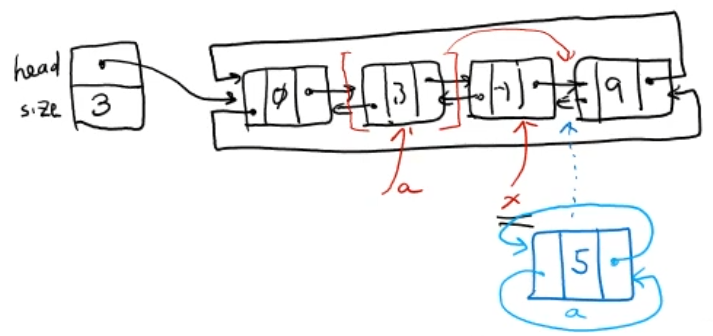 head
size 3
ø 3 -1 9
a
x
5
a